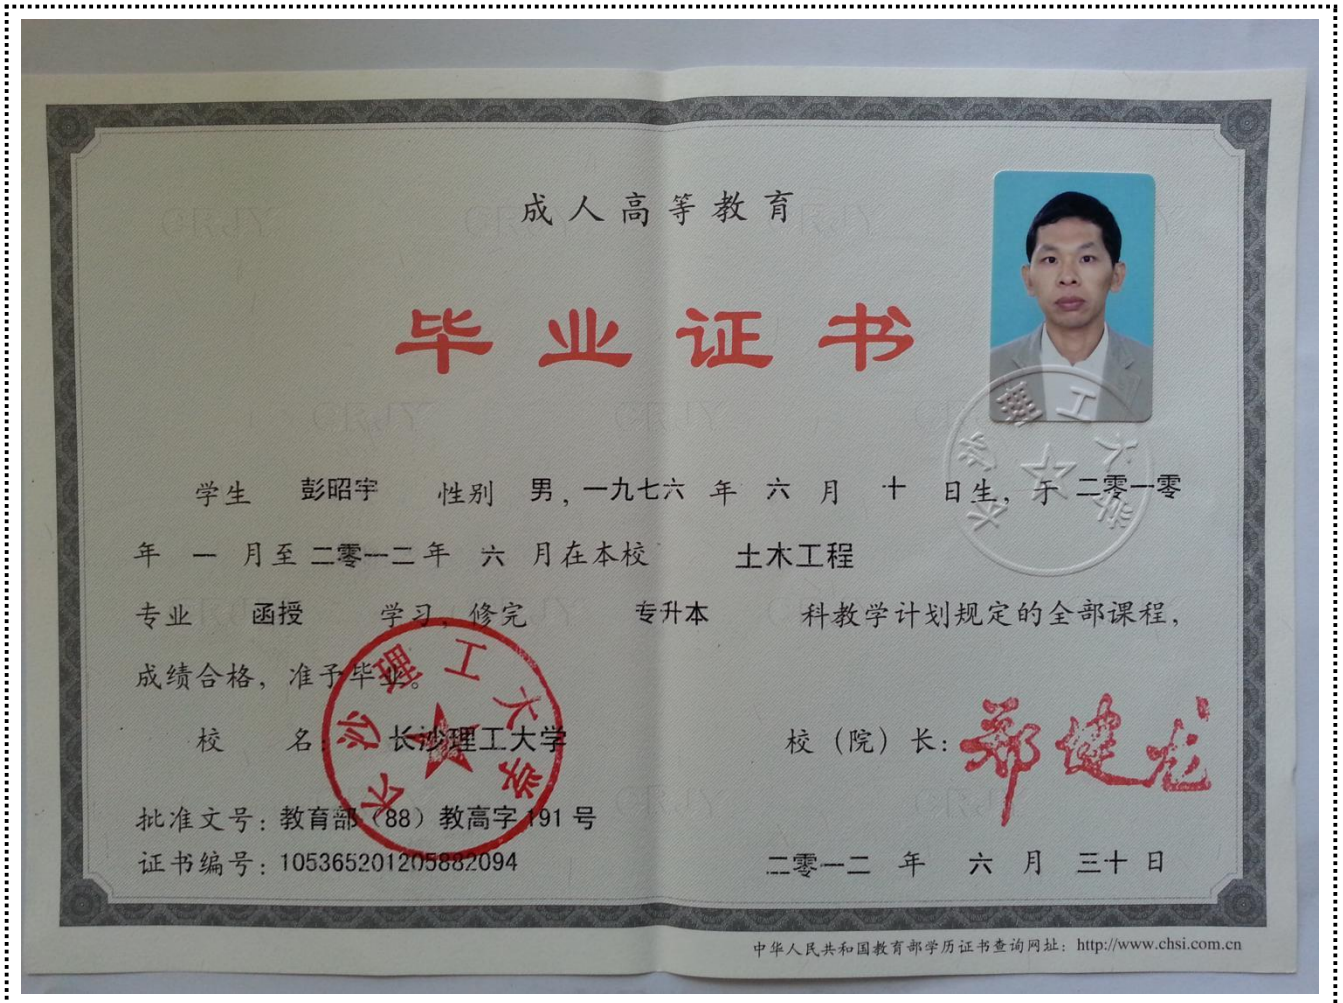 成人高等教育
毕业证书
学生 彭昭宇 性别 男，一九七六 年 六 月 十 日生，于 二零一零
年 一 月至 二零一二 年 六 月在本校 土木工程
专业 函授 学习，修完 专升本 科教学计划规定的全部课程，
成绩合格，准予毕业。
校 名：长沙理工大学 校（院）长：郑健龙
批准文号：教育部（88）教高字 191 号
证书编号：105365201205882094
二零一二 年 六 月 三十 日
中华人民共和国教育部学历证书查询网址：http://www.chsi.com.cn
长沙理工大学
长沙理工大学
CRJY
CRJY
CRJY
CRJY
CRJY
CRJY